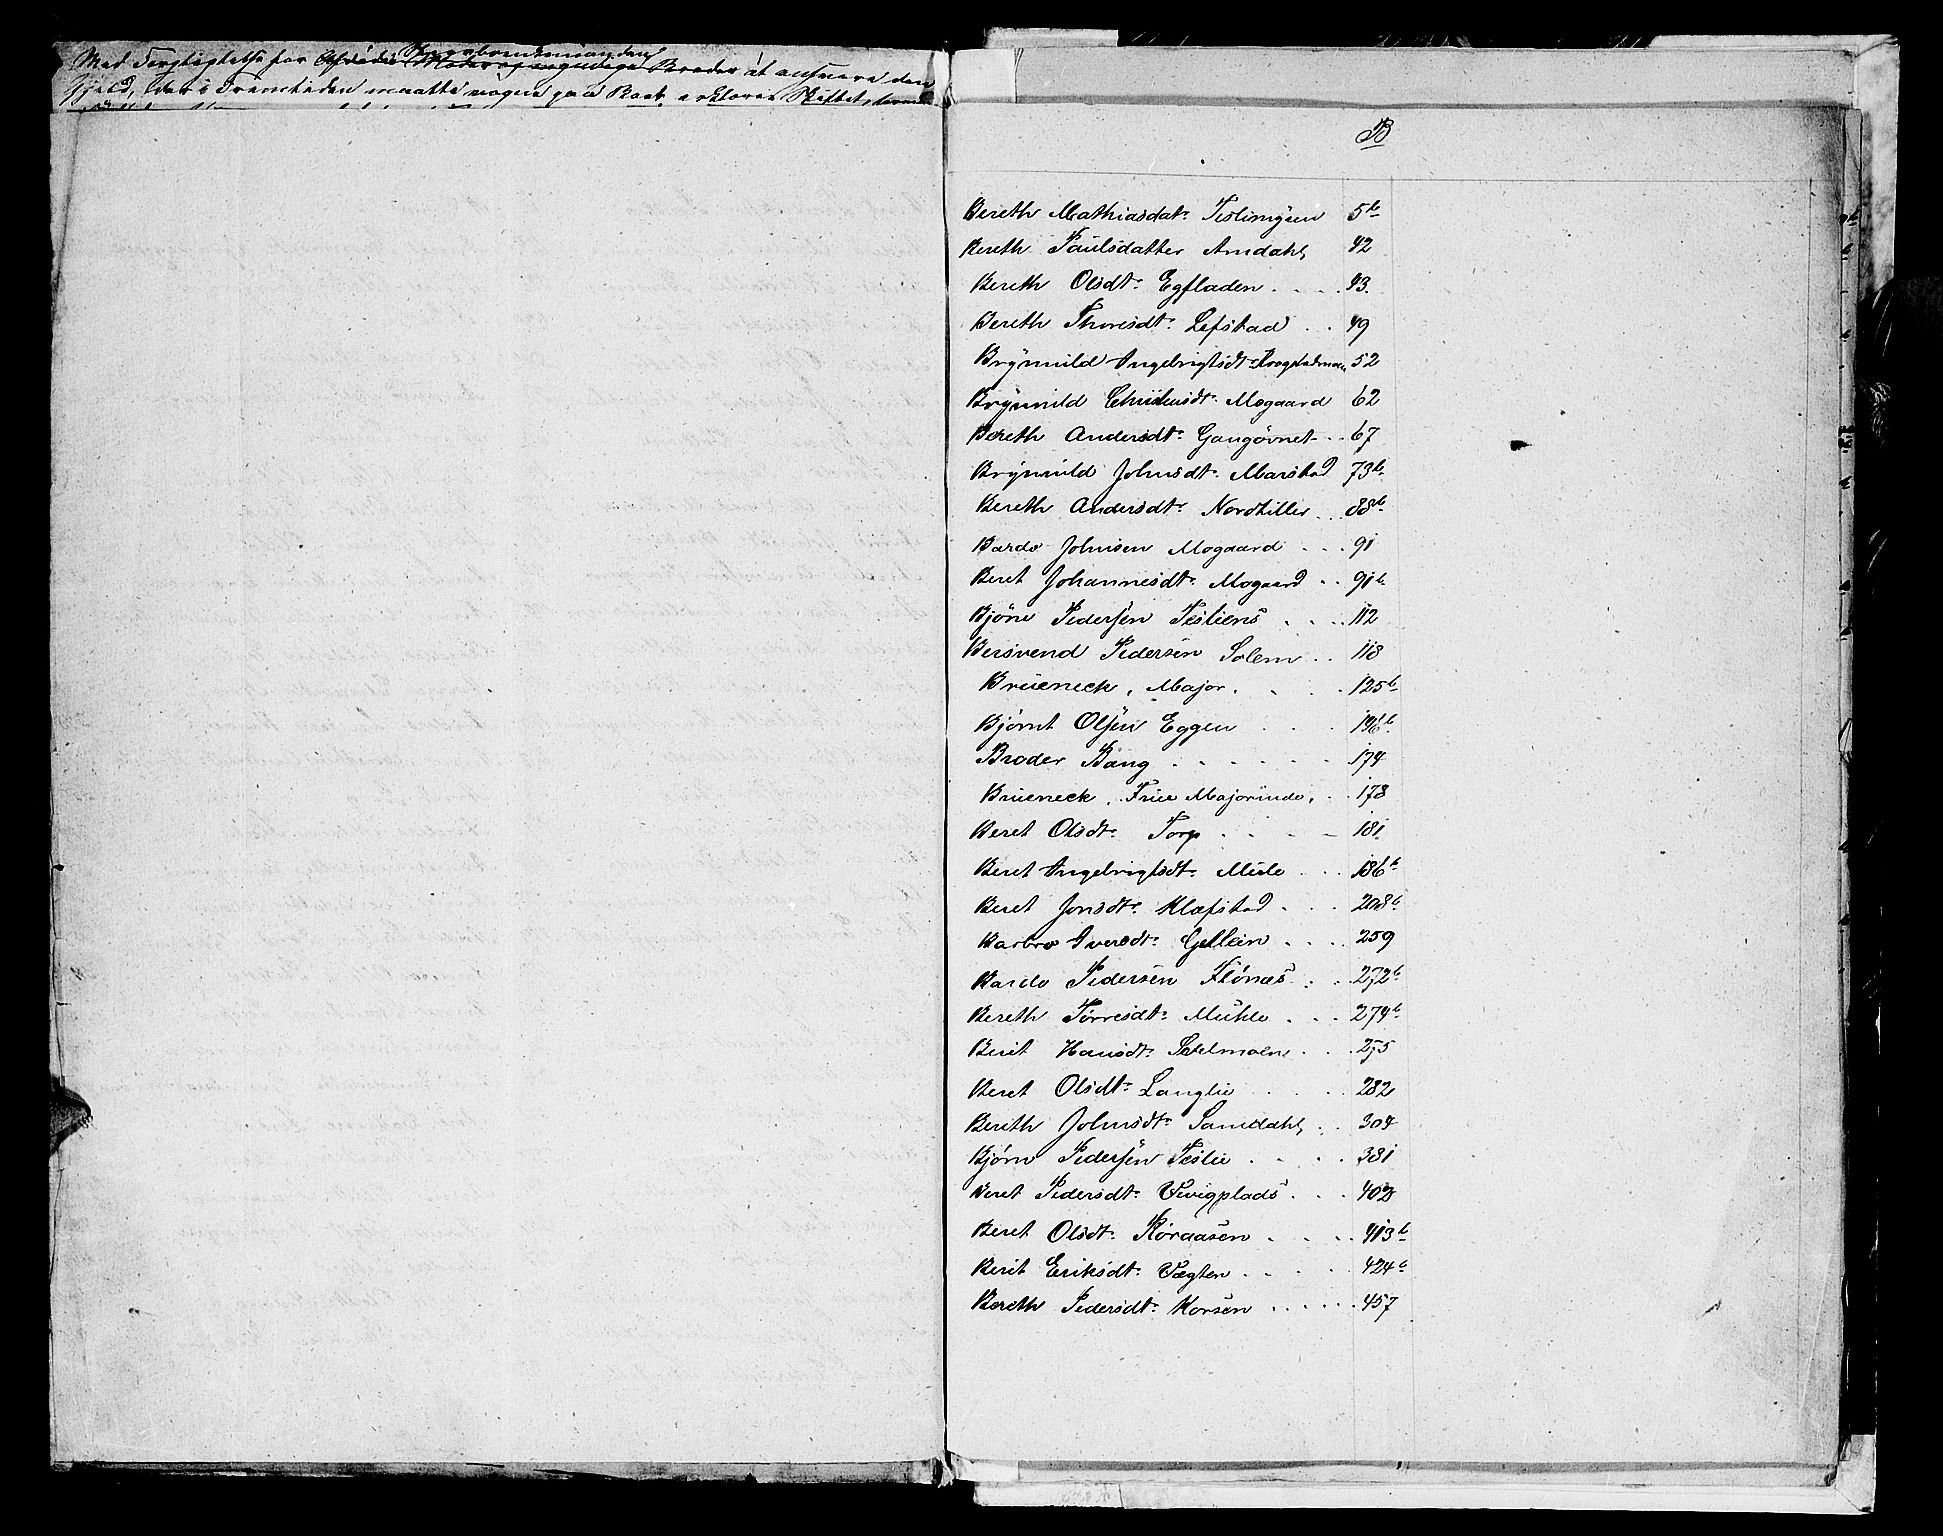 Med Forpligtelse for Broder at ansvare den
Gjeld, der i Fremtiden maatte nogen paa
B
Bereth Mathiasdatr Teslimoen 5b
Bereth Paulsdatter Amdahl 42
Bereth Olsdtr Egfladen 43
Bereth Thoresdtr Lefstad 49
Brynnild Ingebrigtsdtr 52
Brynnild Christensdtr Mogaard 62
Bereth Andersdtr Gangövnet 67
Brynnild Johnsdtr Marstad 73b
Bereth Andersdtr Nordtiller 88b
Bardo Johnsen Mogaard 91
Beret Johannesdtr Mogaard 91b
Björn Pedersen Tesliens 112
Bersvend Pedersen Solem 118
Brueneck, Major 125b
Bjørnt Olsen Eggen 136b
Broder Bang 174
Brueneck, Frue Majorinde, 178
Beret Olsdtr Torp 181
Beret Ingebrigtsdtr Muele 186b
Beret Jonsdtr Klæfstad 208b
Barbro Iversdtr Gellein 259
Bardo Pedersen Flönæs 272b
Bereth Torresdtr Muhle 274b
Berit Hansdtr Sætelmoen 275
Beret Olsdtr Langlie 282
Berith Johnsdtr Samdahl 304
Bjørn Pedersen Teslie 381
Beret Pedersdtr Vevigplads 402
Beret Olsdtr Röraasen 413b
Berit Eriksdtr Vægten 424b
Bereth Pedersdtr Korsen 457